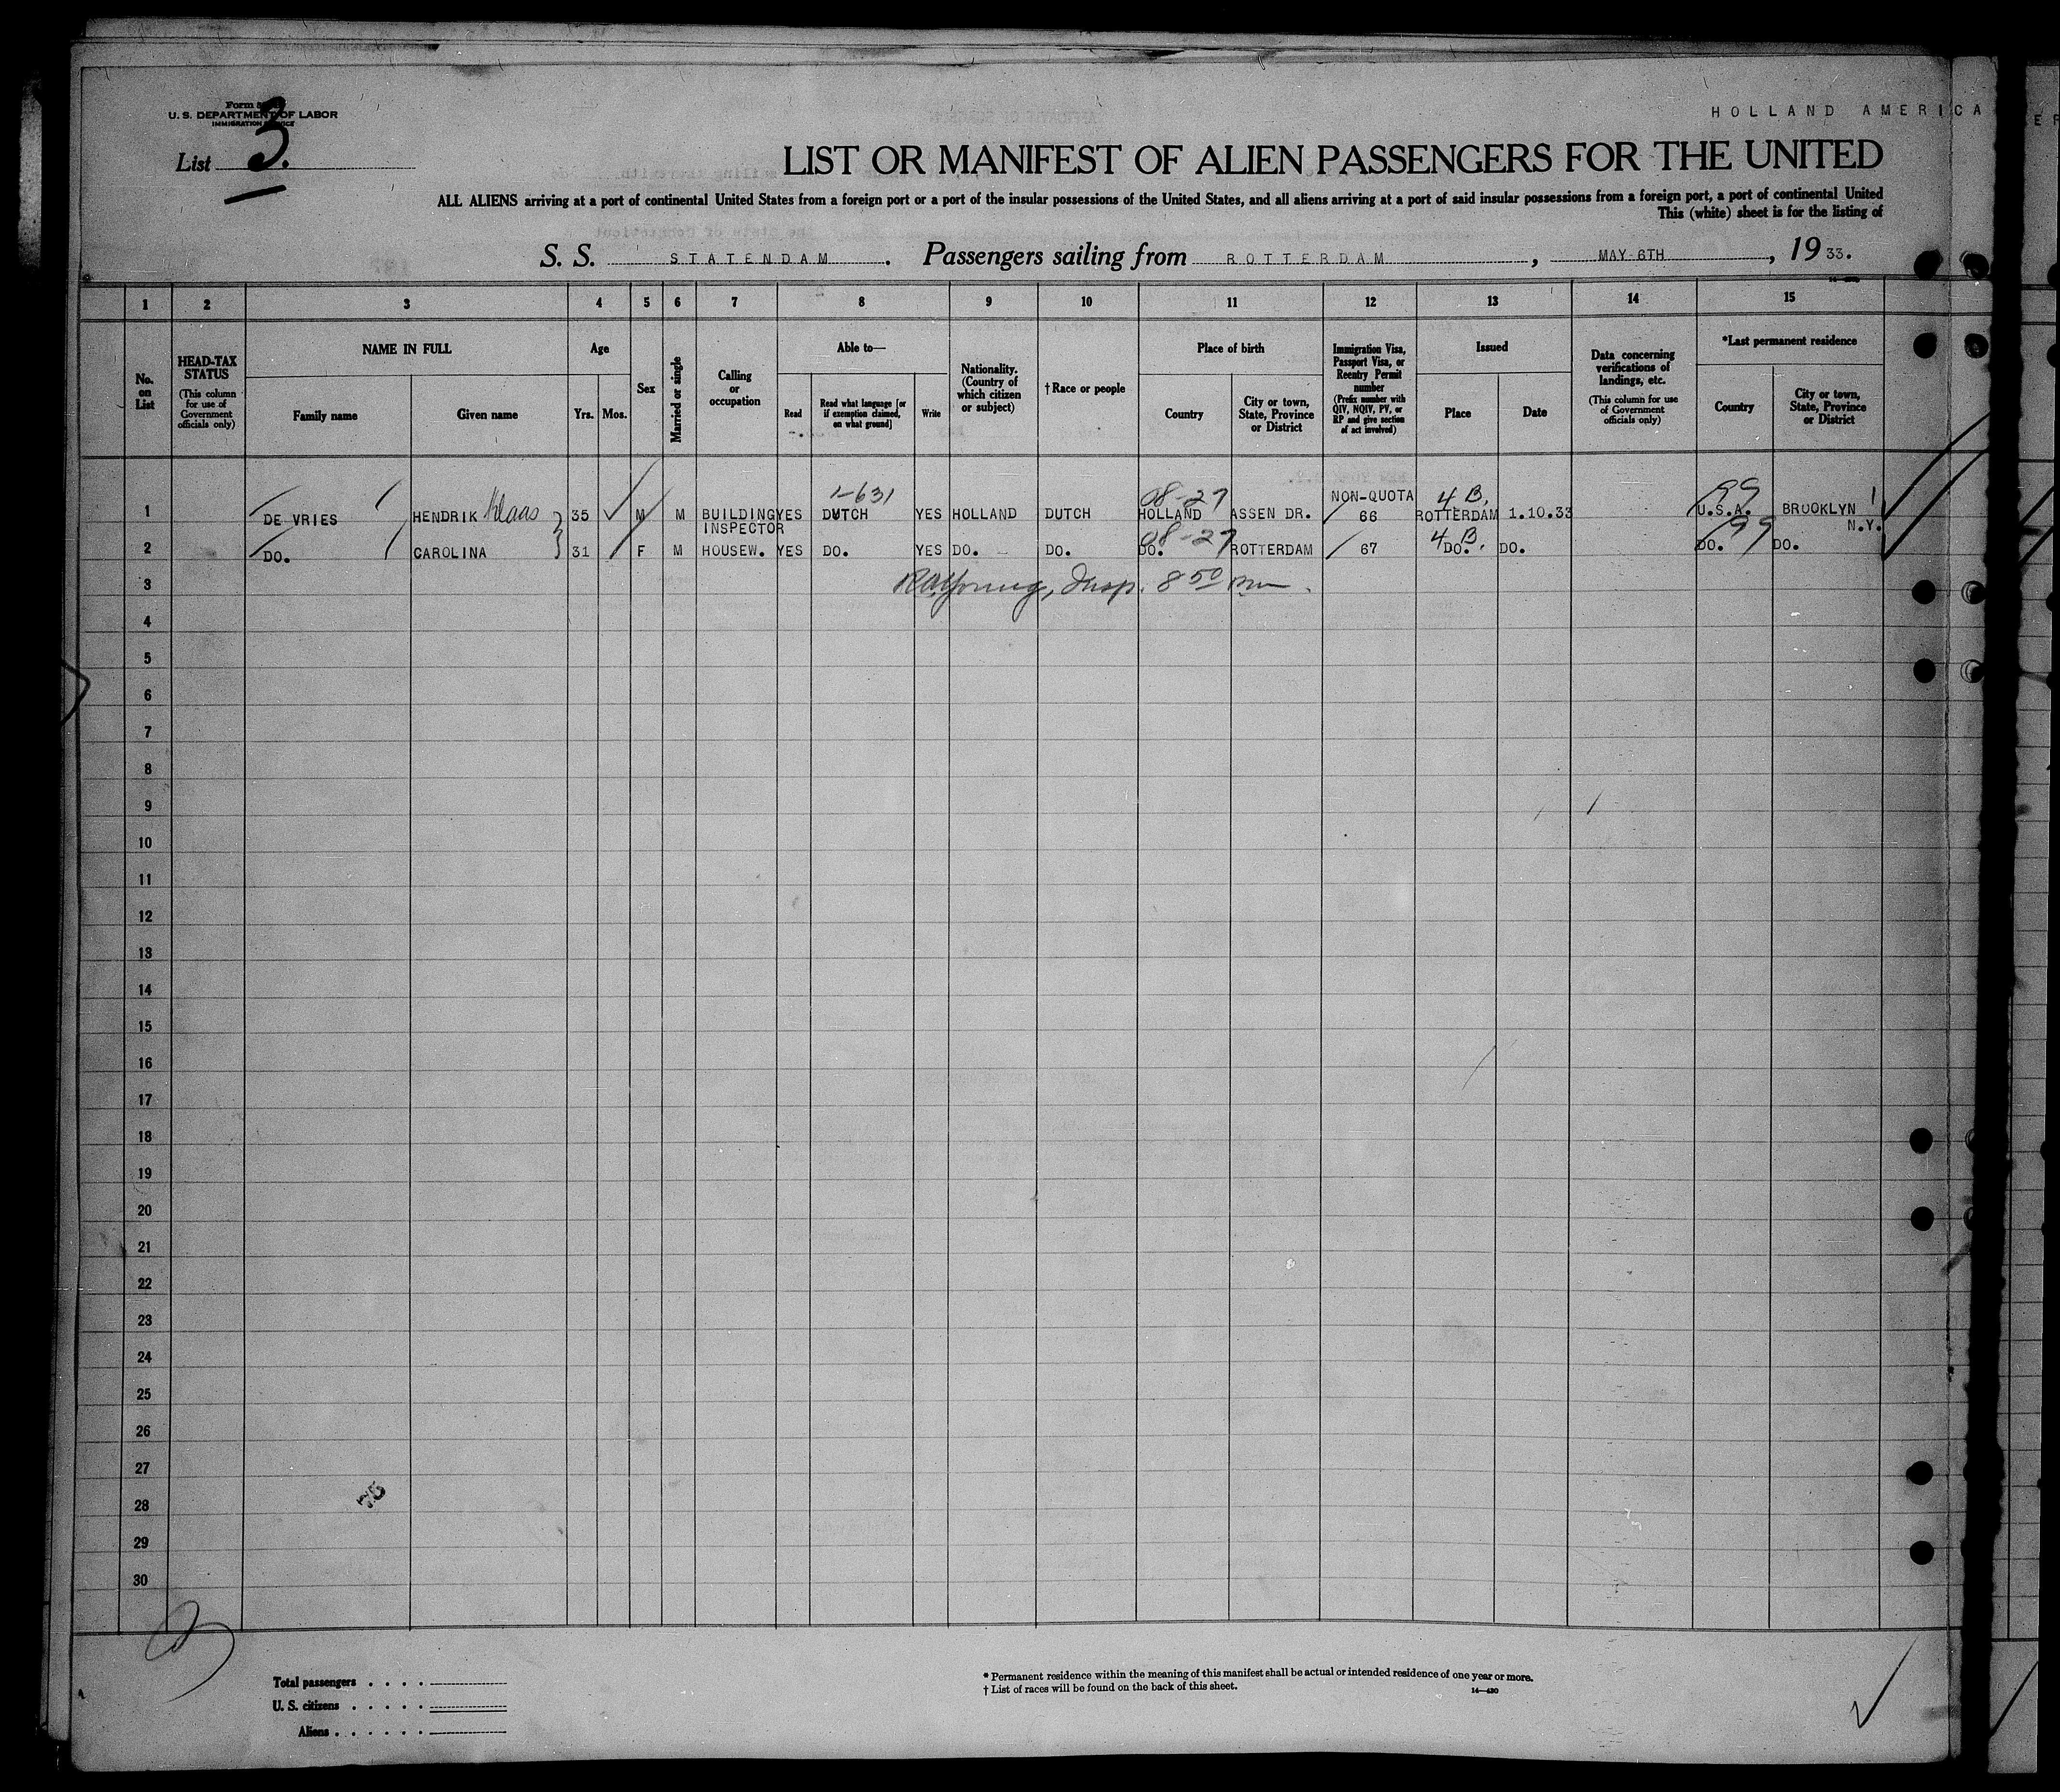 Form
U. S. DEPARTMENT OF LABOR
IMMIGRATION SERVICE
List 3.
HOLLAND AMERICA
LIST OR MANIFEST OF ALIEN PASSENGERS FOR THE UNITED
ALL ALIENS arriving at a port of continental United States from a foreign port or a port of the insular possessions of the United States, and all aliens arriving at a port of said insular possessions from a foreign port, a port of continental United
This (white) sheet is for the listing of
S. S. STATENDAM. Passengers sailing from ROTTERDAM, MAY 6TH, 19 33.
1 2 3 4 5 6 7 8 9 10 11 12 13 14 15
No. on List
HEAD-TAX STATUS (This column for use of Government officials only)
NAME IN FULL
Family name
Given name
Age
Yrs. Mos.
Sex
Married or single
Calling or occupation
Able to—
Read
Read what language [or if exemption claimed, on what ground]
Write
Nationality. (Country of which citizen or subject)
† Race or people
Place of birth
Country
City or town, State, Province or District
Immigration Visa, Passport Visa, or Reentry Permit number (Prefix number with QIV, NQIV, PV, or RP and give section of act involved)
Issued
Place
Date
Data concerning verifications of landings, etc. (This column for use of Government officials only)
*Last permanent residence
Country
City or town, State, Province or District
1-631 08-27 NON-QUOTA 4 B. 99
1 DE VRIES HENDRIK Klaas 35 M M BUILDING INSPECTOR YES DUTCH YES HOLLAND DUTCH HOLLAND ASSEN DR. 66 ROTTERDAM 1.10.33 U.S.A. BROOKLYN N.Y.
08-27 4 B. 99
2 DO. CAROLINA 31 F M HOUSEW. YES DO. YES DO. DO. DO. ROTTERDAM 67 DO. DO. DO. DO.
3 Young, Insp. 8 50
4
5
6
7
8
9
10
11
12
13
14
15
16
17
18
19
20
21
22
23
24
25
26
27
28
29
30
Total passengers . . . .
U. S. citizens . . . . .
Aliens . . . . . .
* Permanent residence within the meaning of this manifest shall be actual or intended residence of one year or more.
† List of races will be found on the back of this sheet.
14—430